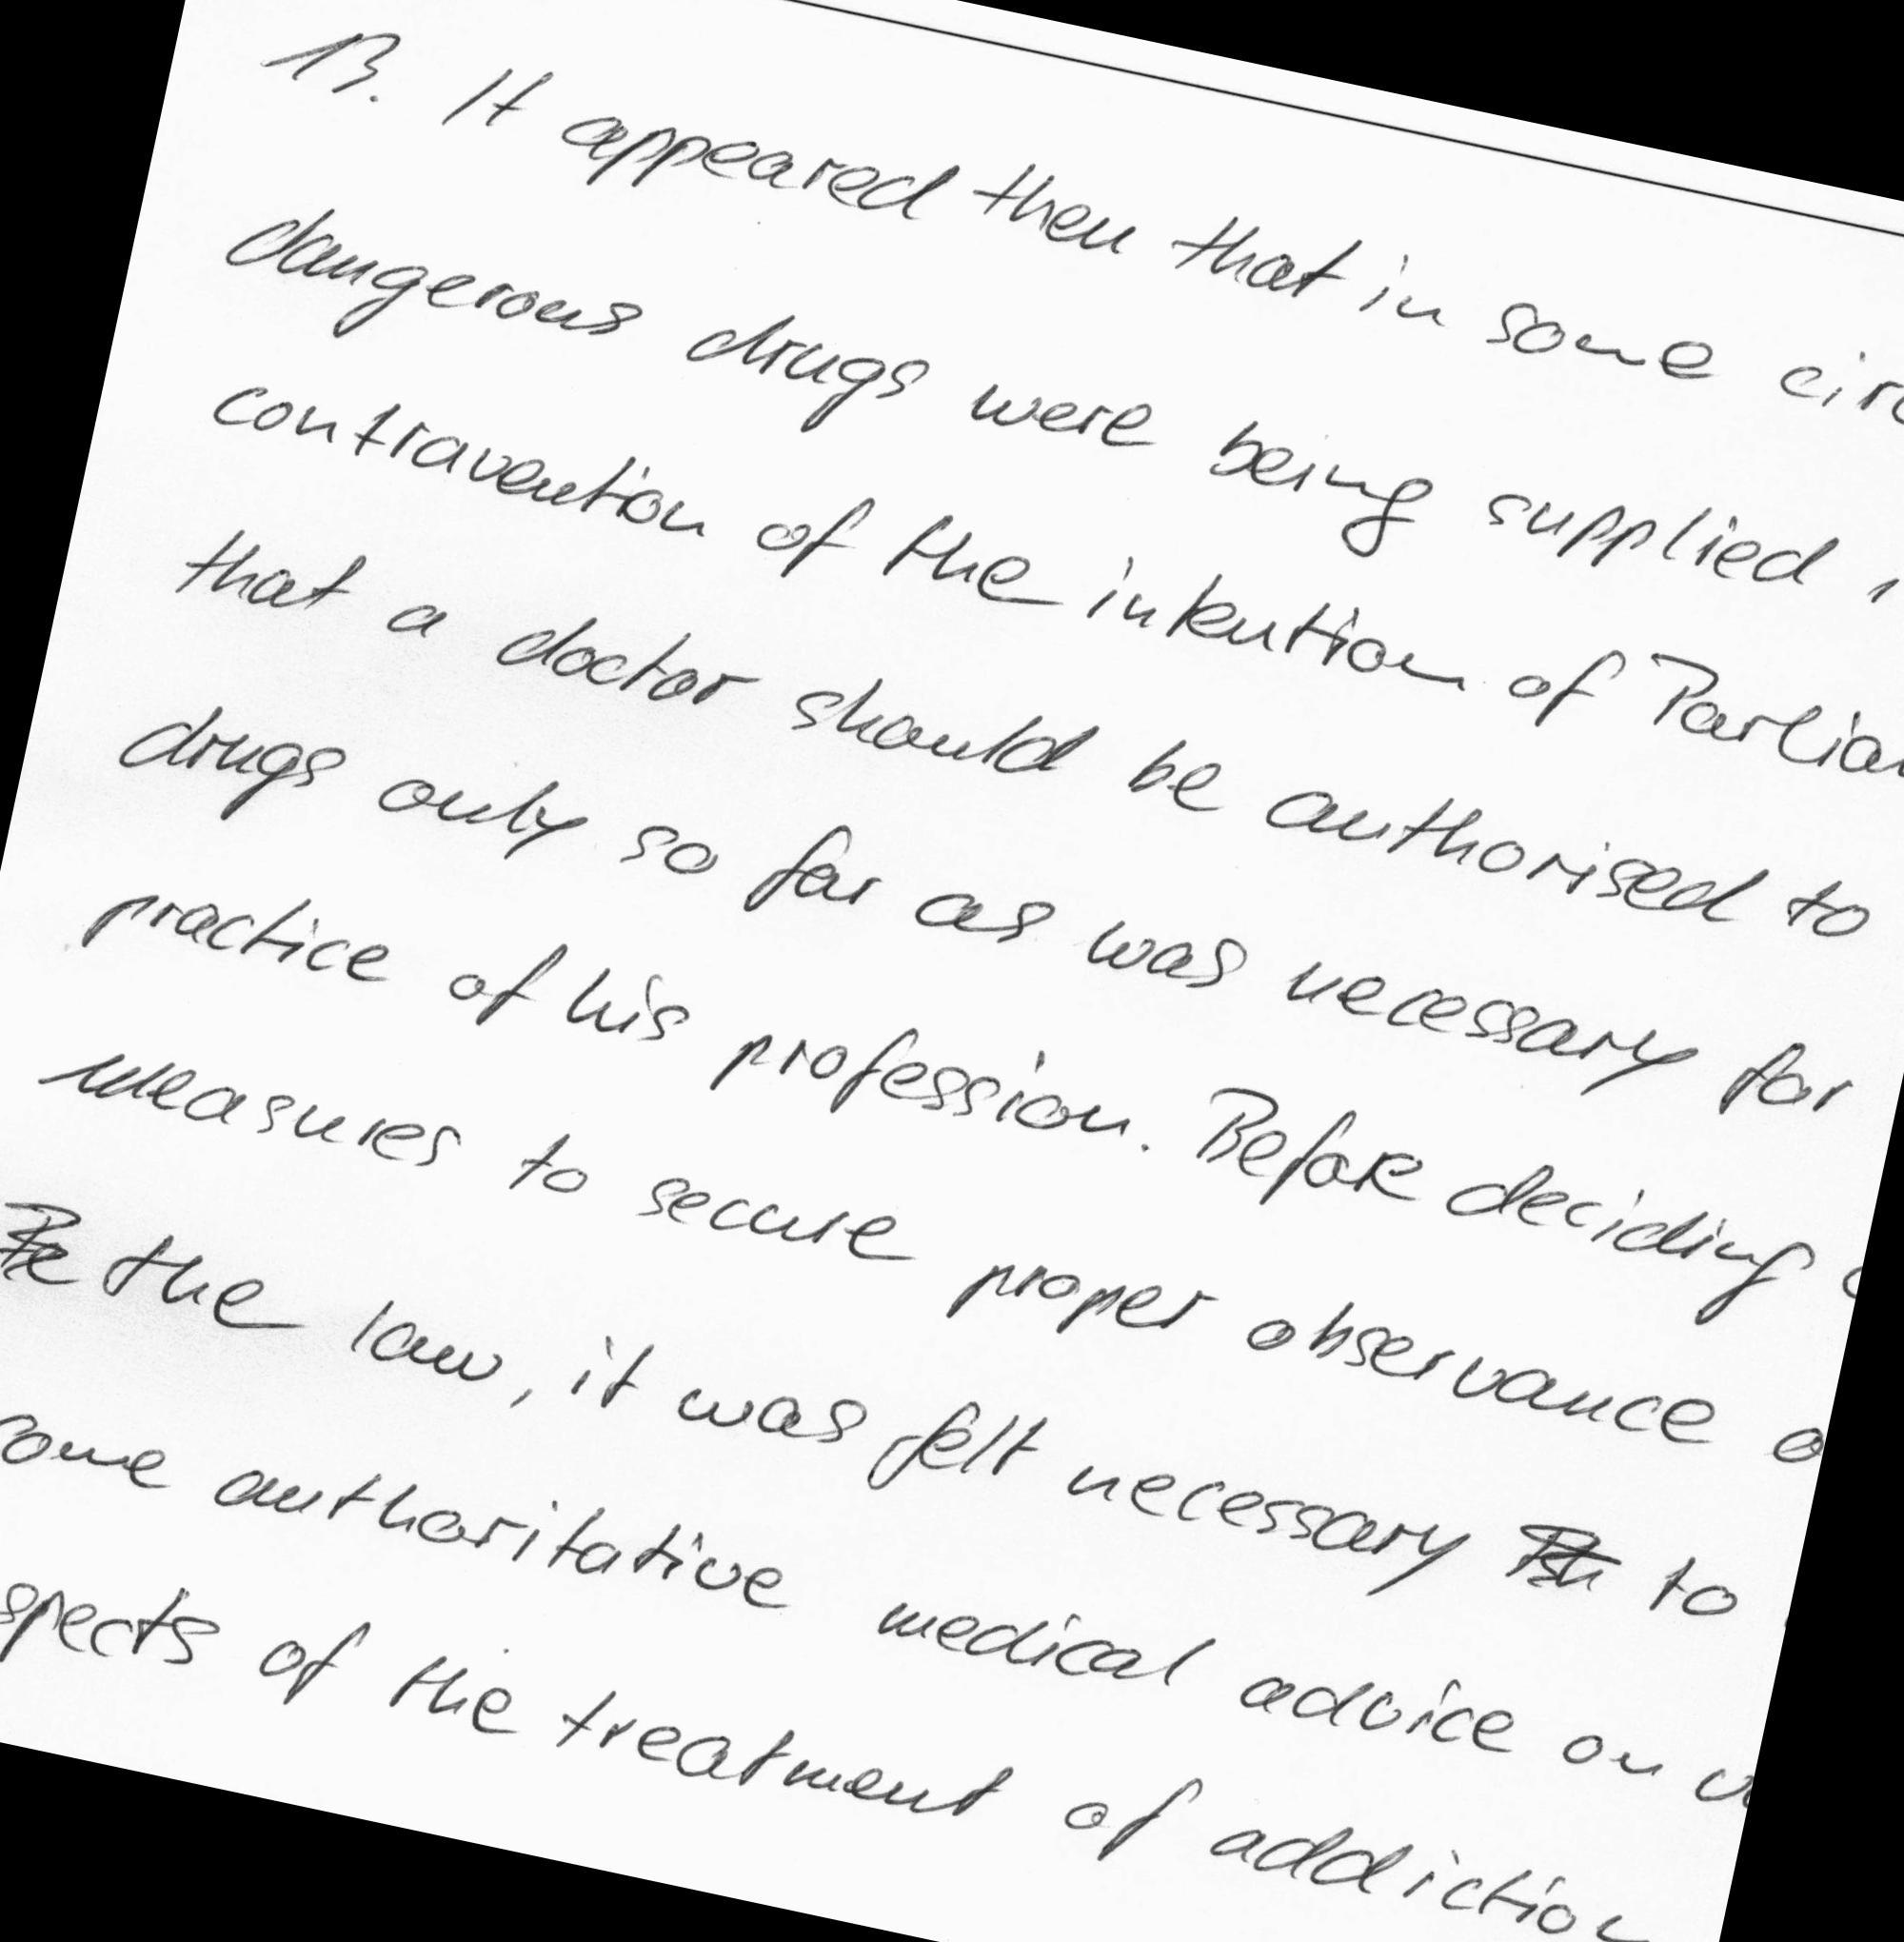 13. It appeared then that in some
dangerous drugs were being supplied,
contravention of the intention of
that a doctor should be authorised to
drugs only so far as was necessary for
practice of his profession. Before deciding
measures to secure proper observance
the law, it was felt necessary to
authoritative medical advice on
of the treatment of addiction